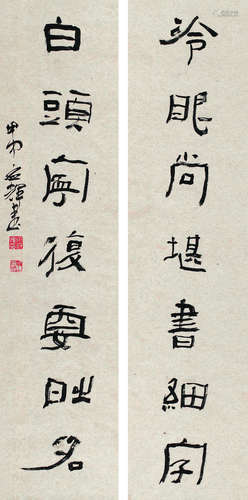 冷眼尚堪書細字
白頭寧復要時名
甲申 輝書